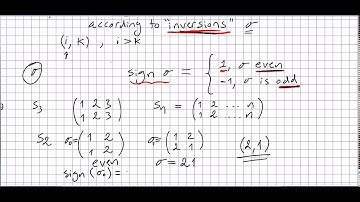 according to "inversions" σ
(i, k) , i>k
σ sign σ = { 1, σ even
-1, σ is odd
S3 (1 2 3 Sn = (1 2 ... n
1 2 3) 1 2 ... n)
S2 σ0=(1 2 σ=(1 2 (2,1)
1 2) 2 1)
even σ = 21
sign (σ0) =